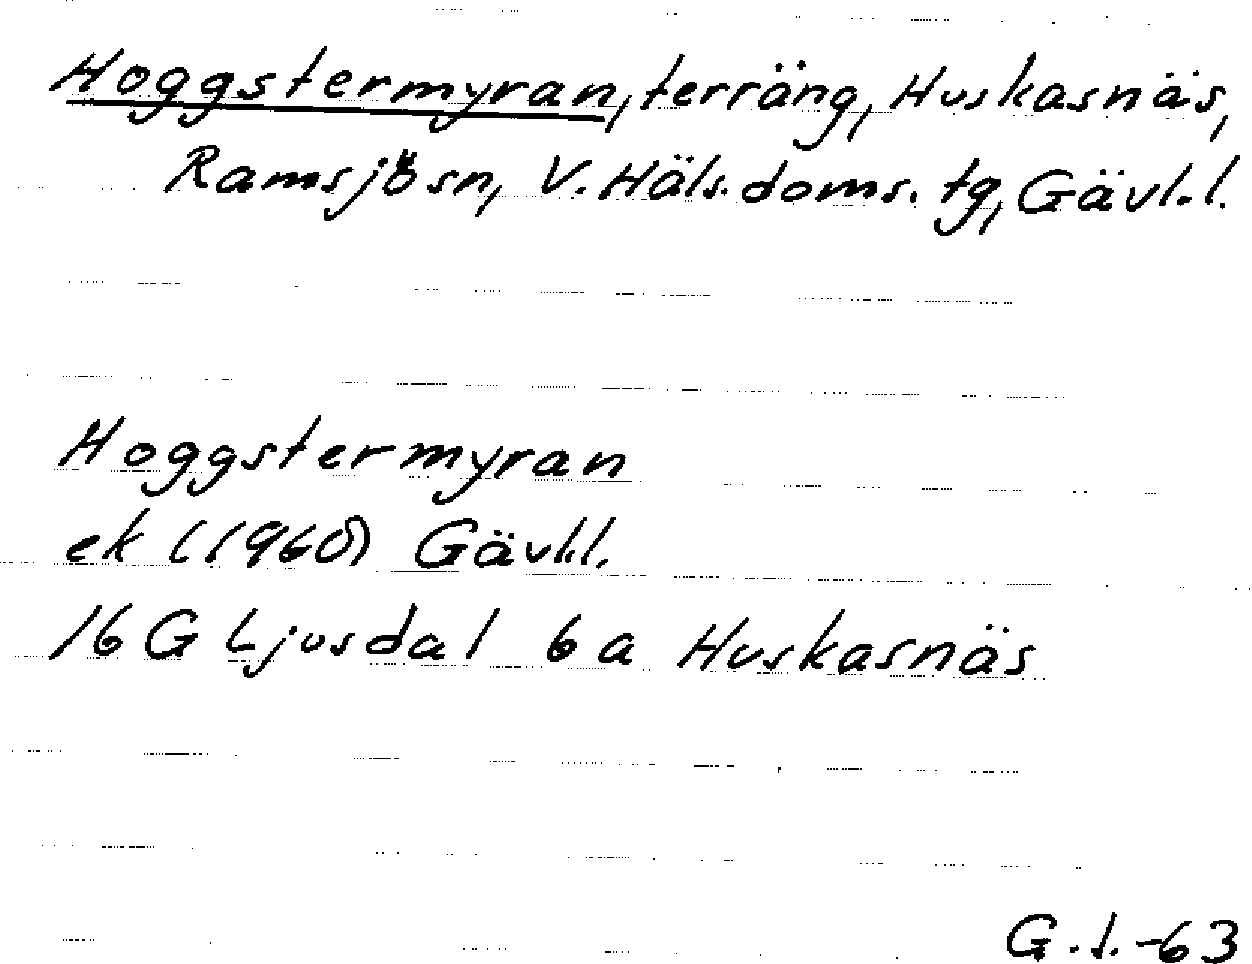 Hoggstermyran, terräng, Huskasnäs,
Ramsjö sn, V. Häls. doms. tg, Gävl.l.
Hoggstermyran
ek (1960) Gävl.l.
16 G Ljusdal 6 a Huskasnäs
G.l.-63